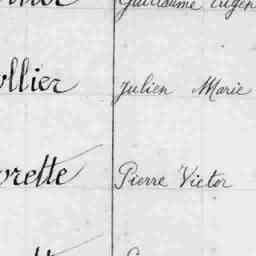 Guillaume Eugèn
ollier Julien Marie
orette Pierre Victor